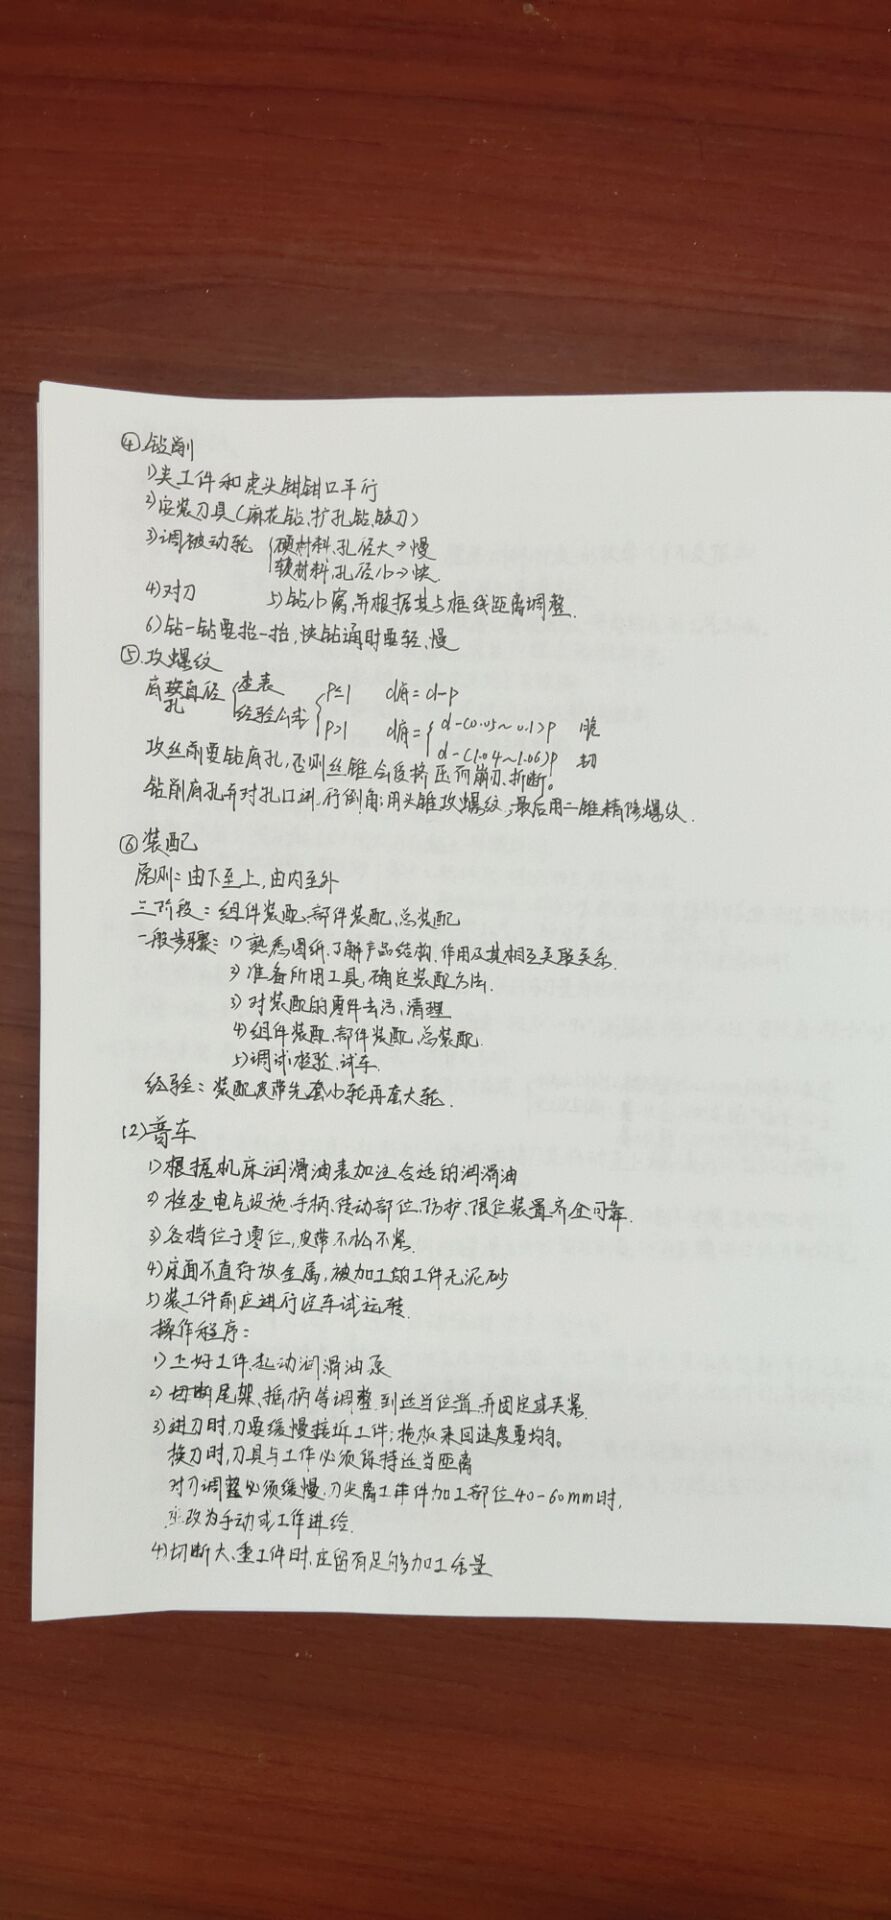 ④钻削
1)夹工件和虎头钳钳口平行
2)安装刀具(麻花钻、扩孔钻、铰刀)
3)调被动轮 {硬材料、孔径大→慢
软材料、孔径小→快
4)对刀 5)钻小窝,并根据其与框线距离调整.
6)钻一钻要抬一抬,快钻通时要轻、慢
⑤攻螺纹
底孔直径 {查表
经验公式 {P≤1 d底=d-p
P>1 d底={d-(0.05~0.1)p 脆
d-(1.04~1.06)p 韧
攻丝前要钻底孔,否则丝锥会受挤压而崩刃、折断。
钻削底孔并对孔口进行倒角;用头锥攻螺纹,最后用二锥精修螺纹.
⑥装配
原则:由下至上,由内至外
三阶段:组件装配、部件装配、总装配
一般步骤:1)熟悉图纸、了解产品结构、作用及其相互关联关系.
2)准备所用工具,确定装配方法.
3)对装配的零件去污,清理
4)组件装配、部件装配、总装配.
5)调试检验、试车.
经验:装配皮带先套小轮再套大轮.
(2)普车
1)根据机床润滑油表加注合适的润滑油
2)检查电气设施、手柄、传动部位、防护、限位装置齐全可靠.
3)各档位于零位,皮带不松不紧.
4)床面不直存放金属,被加工的工件无泥砂
5)装工件前应进行空车试运转.
操作程序:
1)上好工件、起动润滑油泵
2)切断尾架、摇柄等调整到适当位置,并固定或夹紧.
3)进刀时,刀要缓慢接近工件;拖板来回速度要均匀。
换刀时,刀具与工作必须保持适当距离
对刀调整必须缓慢,刀尖离工件加工部位40-60mm时,
改为手动或工作进给.
4)切断大、重工件时,应留有足够加工余量